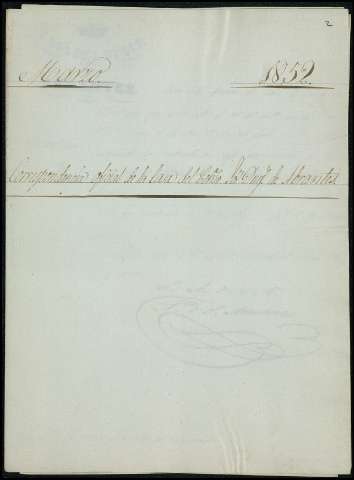 2
Marzo. 1852.
Correspondencia oficial de la Casa del Exmo. Sr. Duq.e de Abrantes